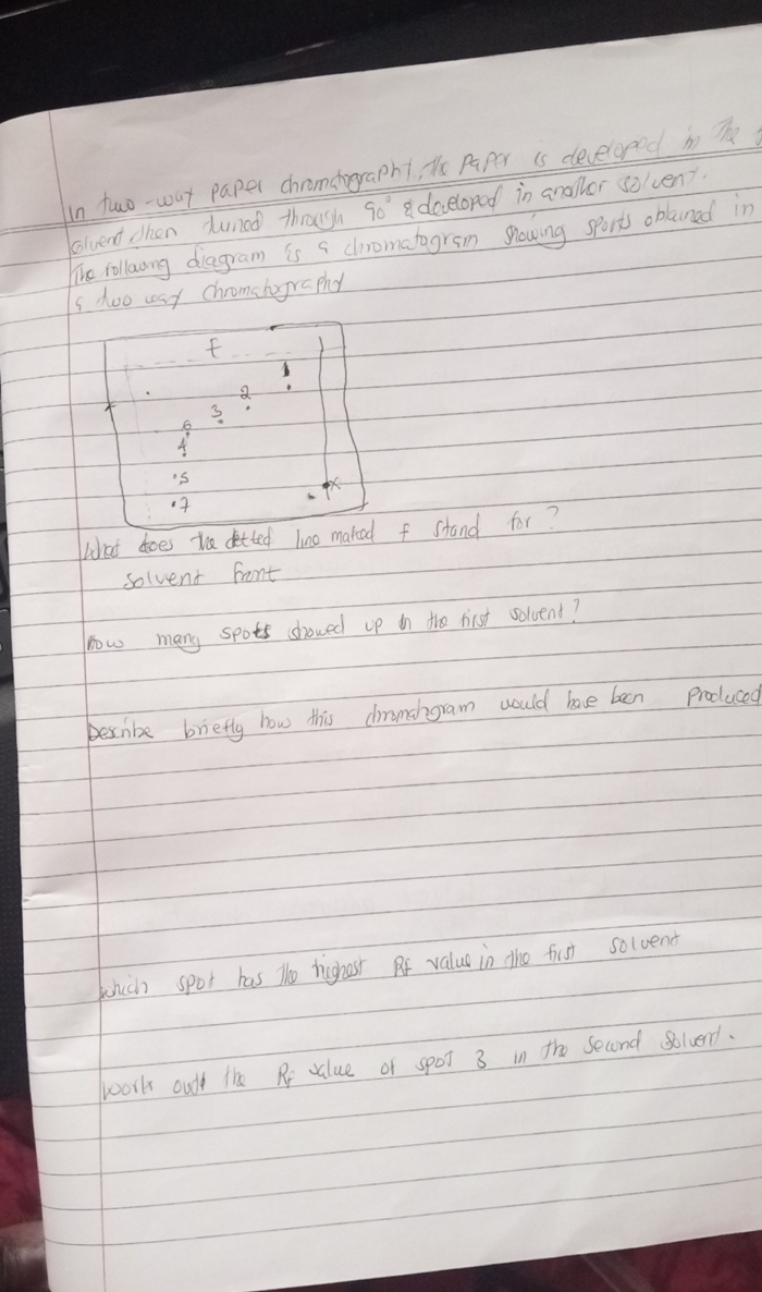 In two-way paper chromatography, the paper is developed in the
solvent then turned through 90° & developed in another solvent.
The following diagram is a chromatogram showing spots obtained in
a two way chromatography
f
1
2
3
6
4
5
x
7
What does the dotted line marked f stand for?
solvent front
how many spots showed up in the first solvent?
Describe briefly how this chromatogram would have been produced
which spot has the highest Rf value in the first solvent
work out the Rf value of spot 3 in the second solvent.